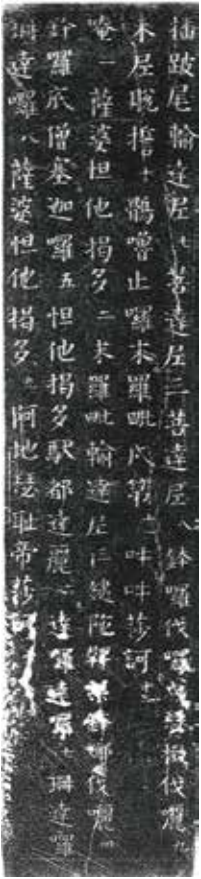 播跛尾輸達尼七菩達尼三菩達尼八鉢囉伐囉瑟伐囇九
末尼脫誓十鶻嚕止囉末羅毗戌第十一吽吽莎訶十二
唵一薩婆怛他揭多二末羅毗輸達尼三健陀鞞梨鉢囉伐囇四
鉢囉底僧塞迦囉五怛他揭多馱都達麗六達囉達囉七珊達囉
珊達囉八薩婆怛他揭多九阿地瑟耻帝莎訶